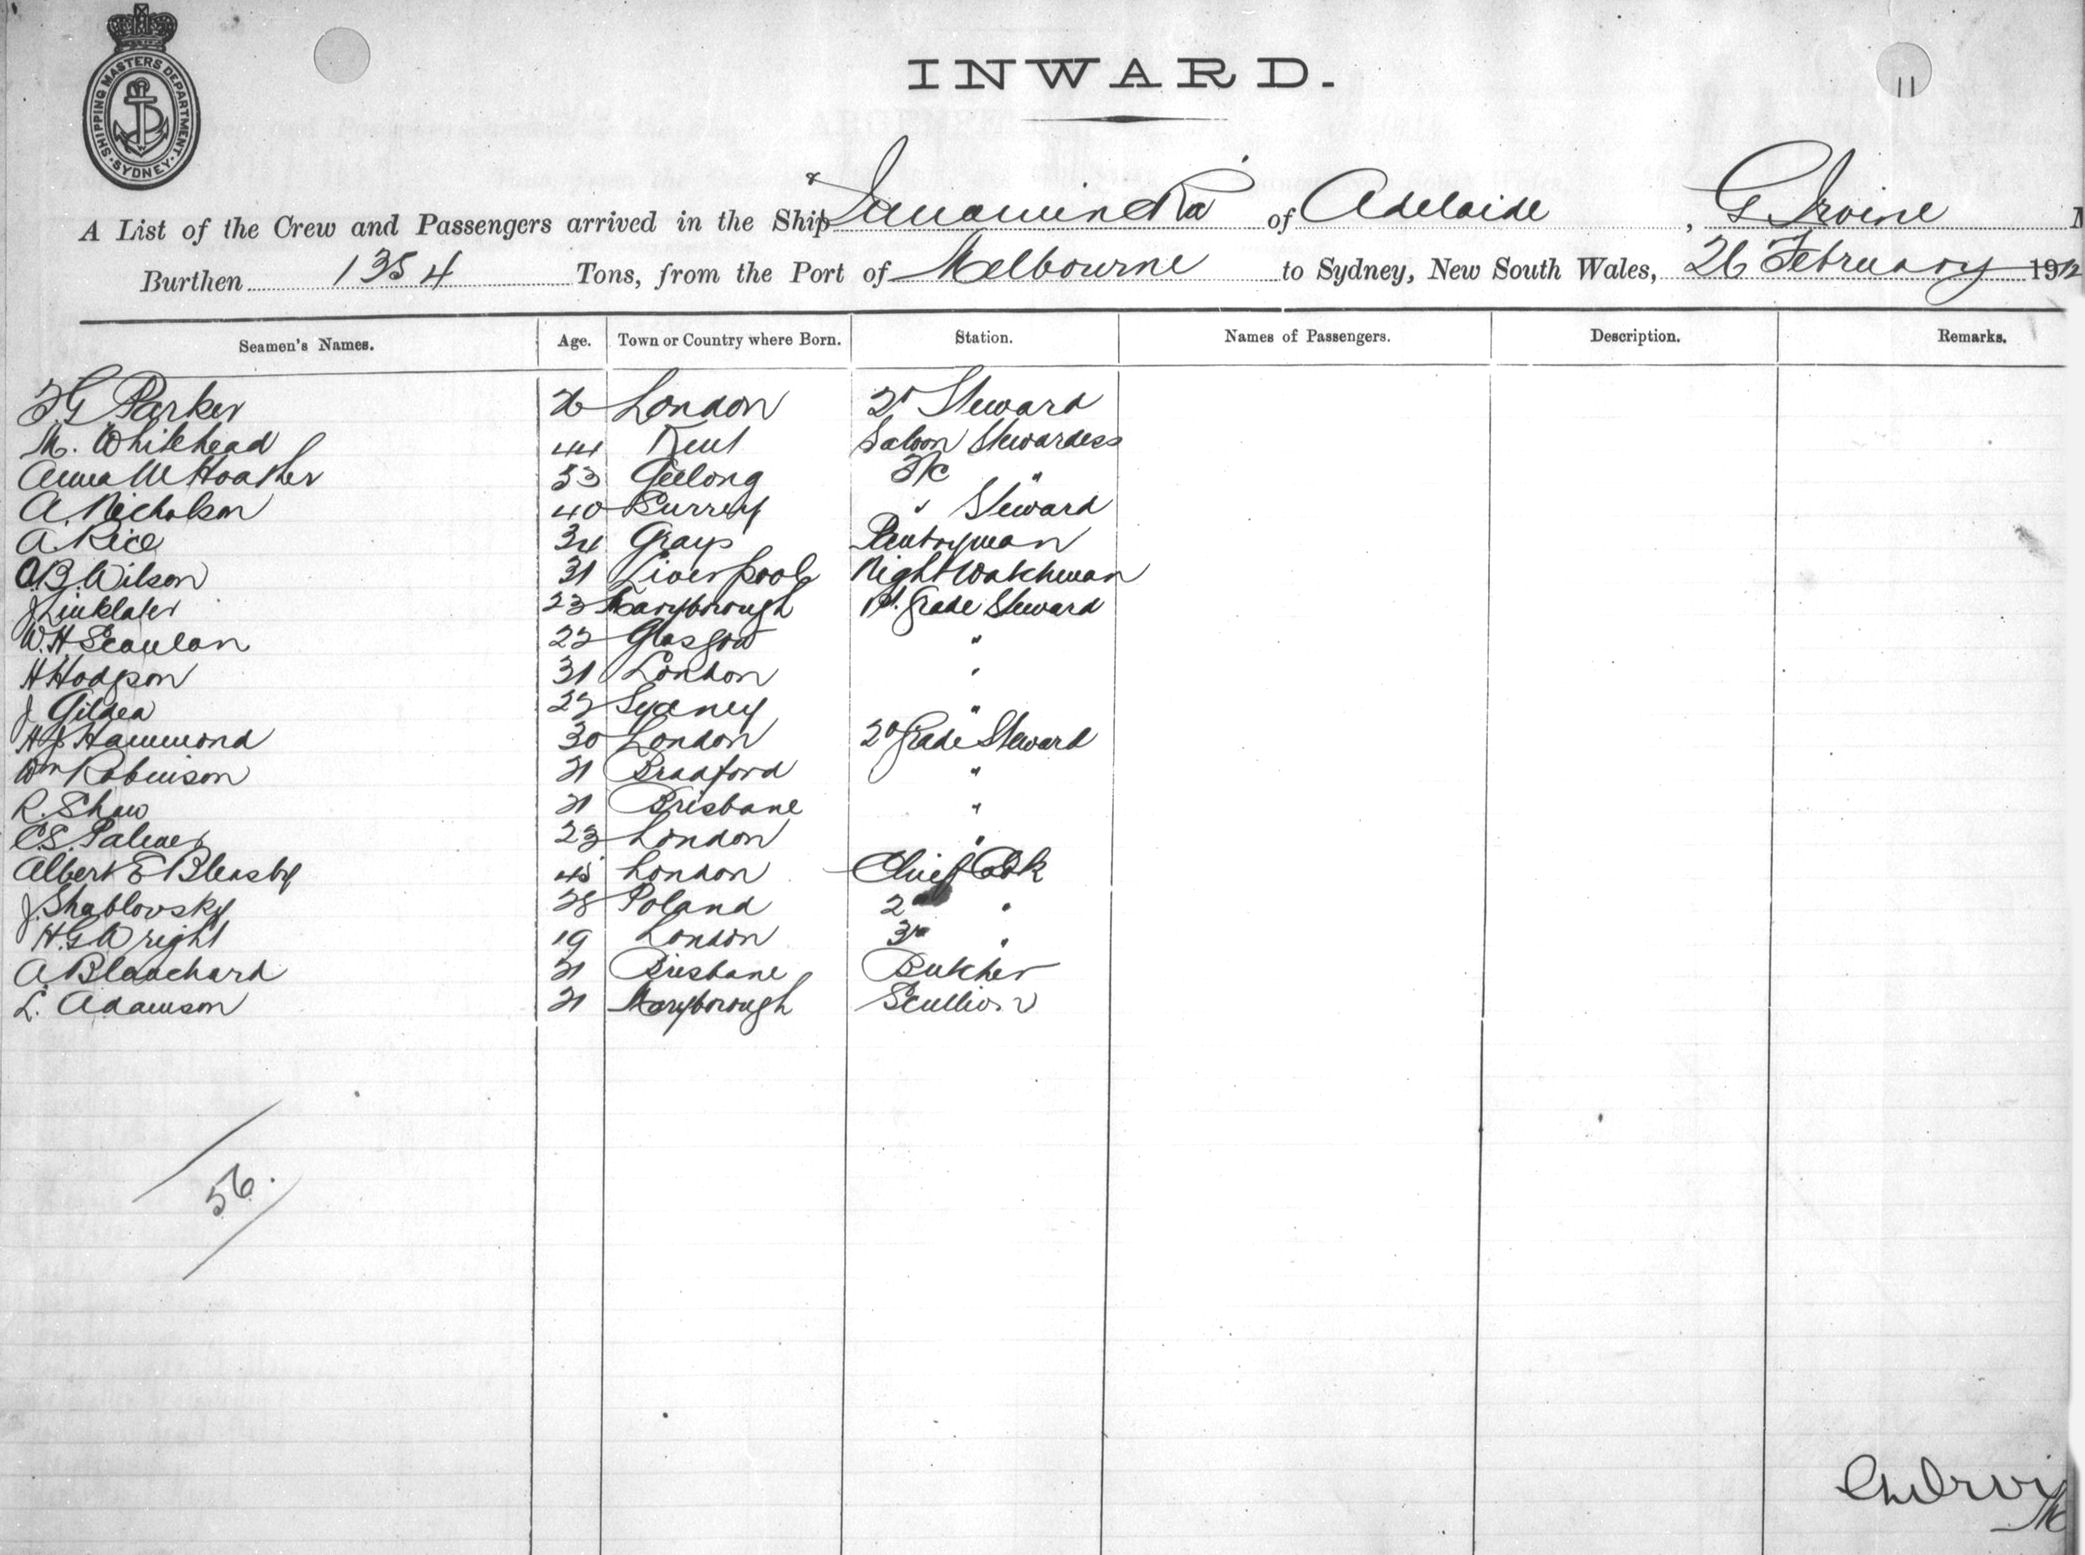 SHIPPING MASTERS DEPARTMENT · SYDNEY ·
INWARD.
11
A List of the Crew and Passengers arrived in the Ship Innamincka of Adelaide, G Irvine
Burthen 1354 Tons, from the Port of Melbourne to Sydney, New South Wales, 26 February 191
Seamen's Names. Age. Town or Country where Born. Station. Names of Passengers. Description. Remarks.
F G Parker 26 London 2d Steward
M. Whitehead 44 Kent Saloon Stewardess
Anna M Hoather 53 Geelong 2/c "
A. Nicholson 40 Surrey " Steward
A. Rice 34 Grays Pantryman
O.B. Wilson 31 Liverpool Night Watchman
J Linklater 23 Maryborough 1st. Grade Steward
W.H Scanlan 22 Glasgow "
H Hodgson 31 London "
J Gildea 22 Sydney "
H J Hammond 30 London 2d Grade Steward
Wm Robinson 21 Bradford "
R. Shaw 21 Brisbane "
C.S. Palmer 23 London "
Albert E Bleasby 45 London Chief Cook
J. Shablovsky 28 Poland 2 "
H.G Wright 19 London 3r "
A. Blanchard 21 Brisbane Butcher
L. Adamson 21 Maryborough Scullion
56.